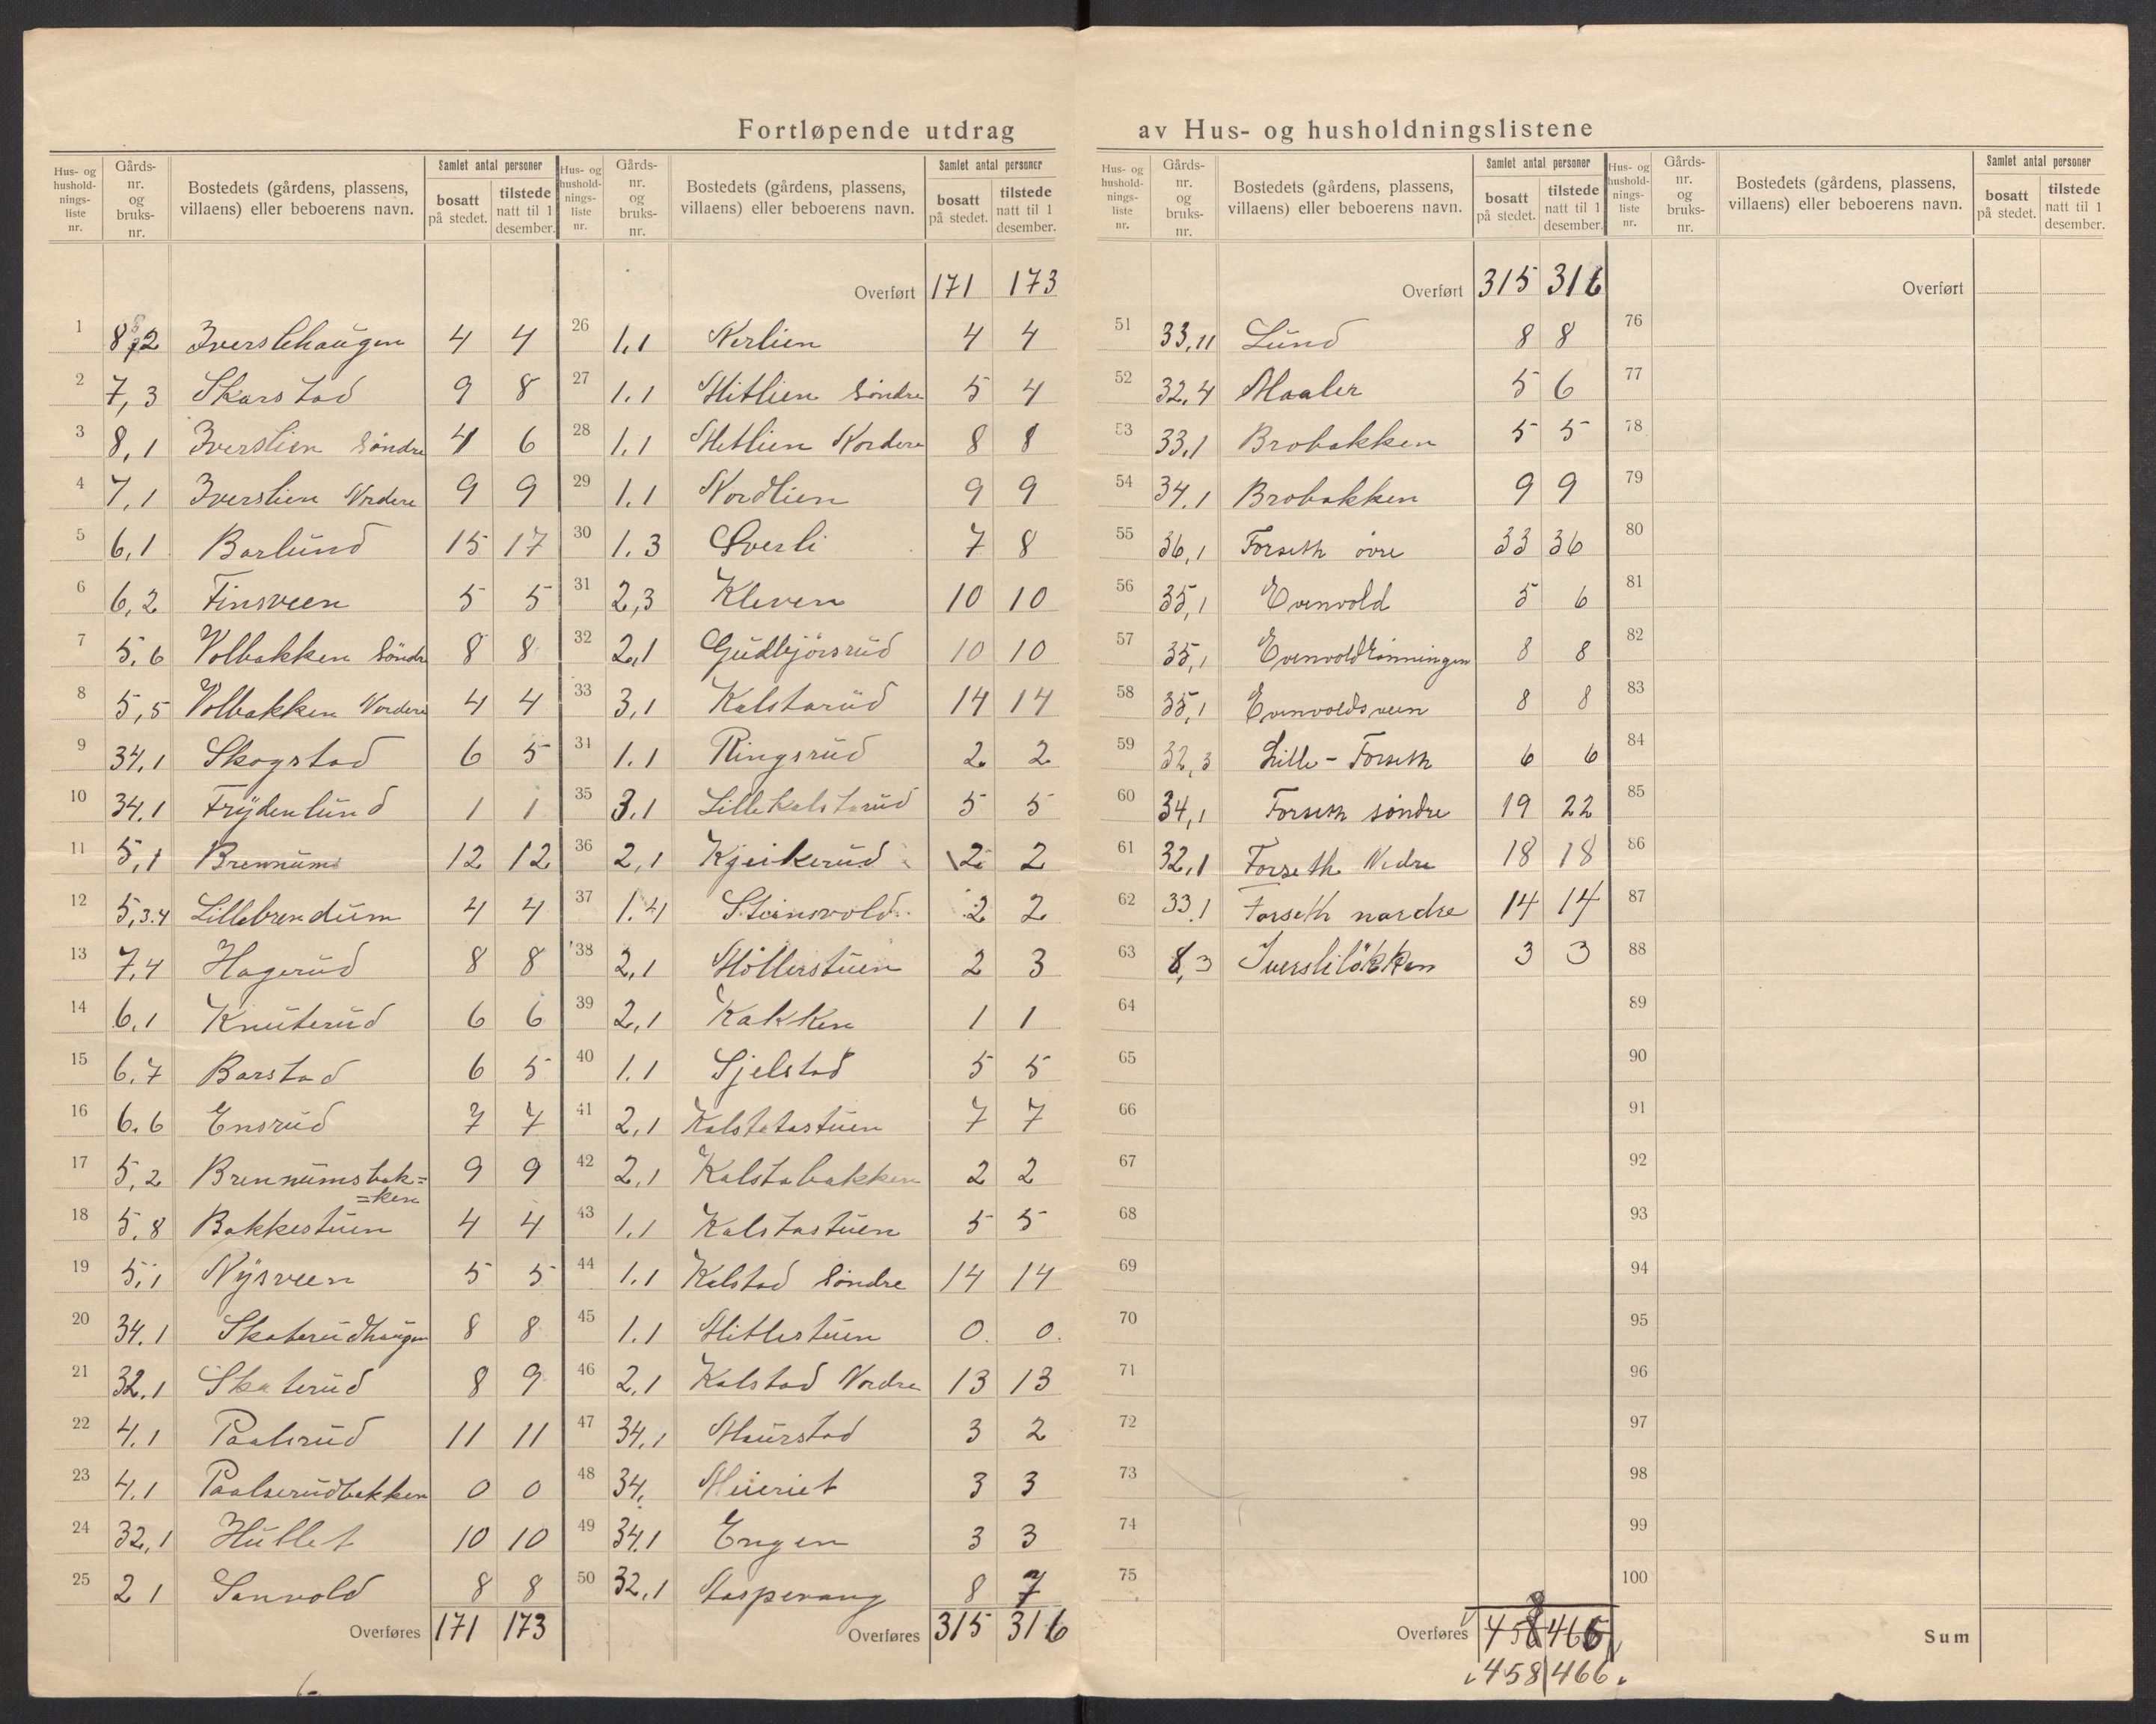 Fortløpende utdrag av Hus- og husholdningslistene
Hus- og husholdningsliste nr. | Gårds- nr. og bruks- nr. | Bostedets (gårdens, plassens, villaens) eller beboerens navn. | Samlet antal personer | bosatt på stedet. | tilstede natt til 1 desember.
1 8,2 Iverslihaugen 4 4
2 7,3 Skarstad 9 8
3 8,1 Iverslien Söndre 4 6
4 7,1 Iverslien Nordere 9 9
5 6,1 Barlund 15 17
6 6,2 Finsveen 5 5
7 5,6 Volbakken Söndr 8 8
8 5,5 Volbakken Nordere 4 4
9 34,1 Skogstad 6 5
10 34,1 Frydenlund 1 1
11 5,1 Brennums 12 12
12 5,3.4 Lillebrendum 4 4
13 7,4 Hagerud 8 8
14 6,1 Knuterud 6 6
15 6.7 Barstad 6 5
16 6.6 Ensrud 7 7
17 5,2 Brennumsbak=
=ken 9 9
18 5.8 Bakkestuen 4 4
19 5,1 Nysveen 5 5
20 34.1 Skaterudhaugen 8 8
21 32.1 Skaterud 8 9
22 4.1 Paalsrud 11 11
23 4.1 Paalserudbakken 0 0
24 32,1 Hullet 10 10
25 2 1 Sanvold 8 8
Overføres 171 173
Hus- og husholdningsliste nr. | Gårds- nr. og bruks- nr. | Bostedets (gårdens, plassens, villaens) eller beboerens navn. | Samlet antal personer | bosatt på stedet. | tilstede natt til 1 desember.
Overført 171 173
26 1,1 Nerlien 4 4
27 1.1 Hitlien Söndre 5 4
28 1.1 Hitlien Nordere 8 8
29 1.1 Nordlien 9 9
30 1.3 Sverli 7 8
31 2,3 Kleven 10 10
32 2,1 Gudbjörsrud 10 10
33 3,1 Kalstarud 14 14
34 1.1 Ringsrud 2 2
35 3.1 Lillekalstarud 5 5
36 2,1 Kjeikerud 2 2
37 1.4 Steinsvold 2 2
38 2,1 Möllerstuen 2 3
39 2,1 Kakken 1 1
40 1.1 Sjelstad 5 5
41 2,1 Kalstatastuen 7 7
42 2,1 Kalstabakken 2 2
43 1.1 Kalstastuen 5 5
44 1.1 Kalstad Söndre 14 14
45 1.1 Hitlestuen 0. 0.
46 2,1 Kalstad Nordre 13 13
47 34,1 Maurstad 3 2
48 34, Meieriet 3 3
49 34.1 Engen 3 3
50 32,1 Haspevang 8 7
Overføres 315 316
Hus- og husholdningsliste nr. | Gårds- nr. og bruks- nr. | Bostedets (gårdens, plassens, villaens) eller beboerens navn. | Samlet antal personer | bosatt på stedet. | tilstede natt til 1 desember.
Overført 315 316
51 33,11 Lund 8 8
52 32,4 Maaler 5 6
53 33,1 Brobakken 5 5
54 34.1 Brobakken 9 9
55 36,1 Forseth övre 33 36
56 35,1 Evenvold 5 6
57 35,1 Evenvoldrönningen 8 8
58 35,1 Evenvoldsveen 8 8
59 32,3 Lille-Forseth 6 6
60 34,1 Forseth söndre 19 22
61 32,1 Forseth Nedre 18 18
62 33.1 Forseth nordre 14 14
63 8,3 Iverslilökken 3 3
64
65
66
67
68
69
70
71
72
73
74
75
Overføres 458 466
458 466
Hus- og husholdningsliste nr. | Gårds- nr. og bruks- nr. | Bostedets (gårdens, plassens, villaens) eller beboerens navn. | Samlet antal personer | bosatt på stedet. | tilstede natt til 1 desember.
Overført
76
77
78
79
80
81
82
83
84
85
86
87
88
89
90
91
92
93
94
95
96
97
98
99
100
Sum